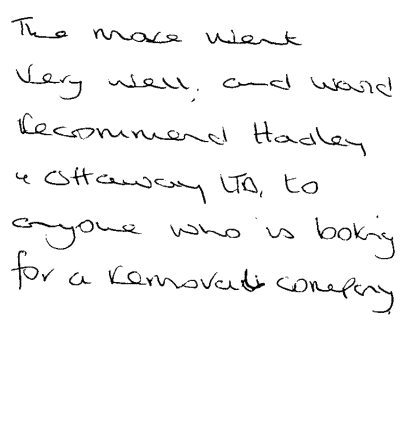 The move went
very well, and would
recommend Hadley
& Ottaway LTD, to
anyone who is looking
for a removals company